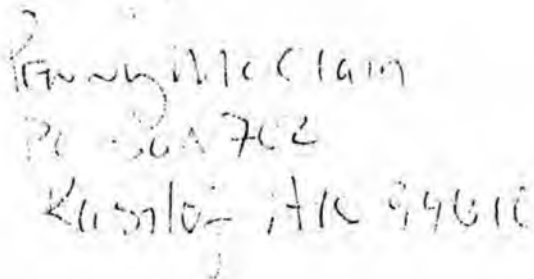 Penny McClain
PO Box 702
Kasilof AK 99610